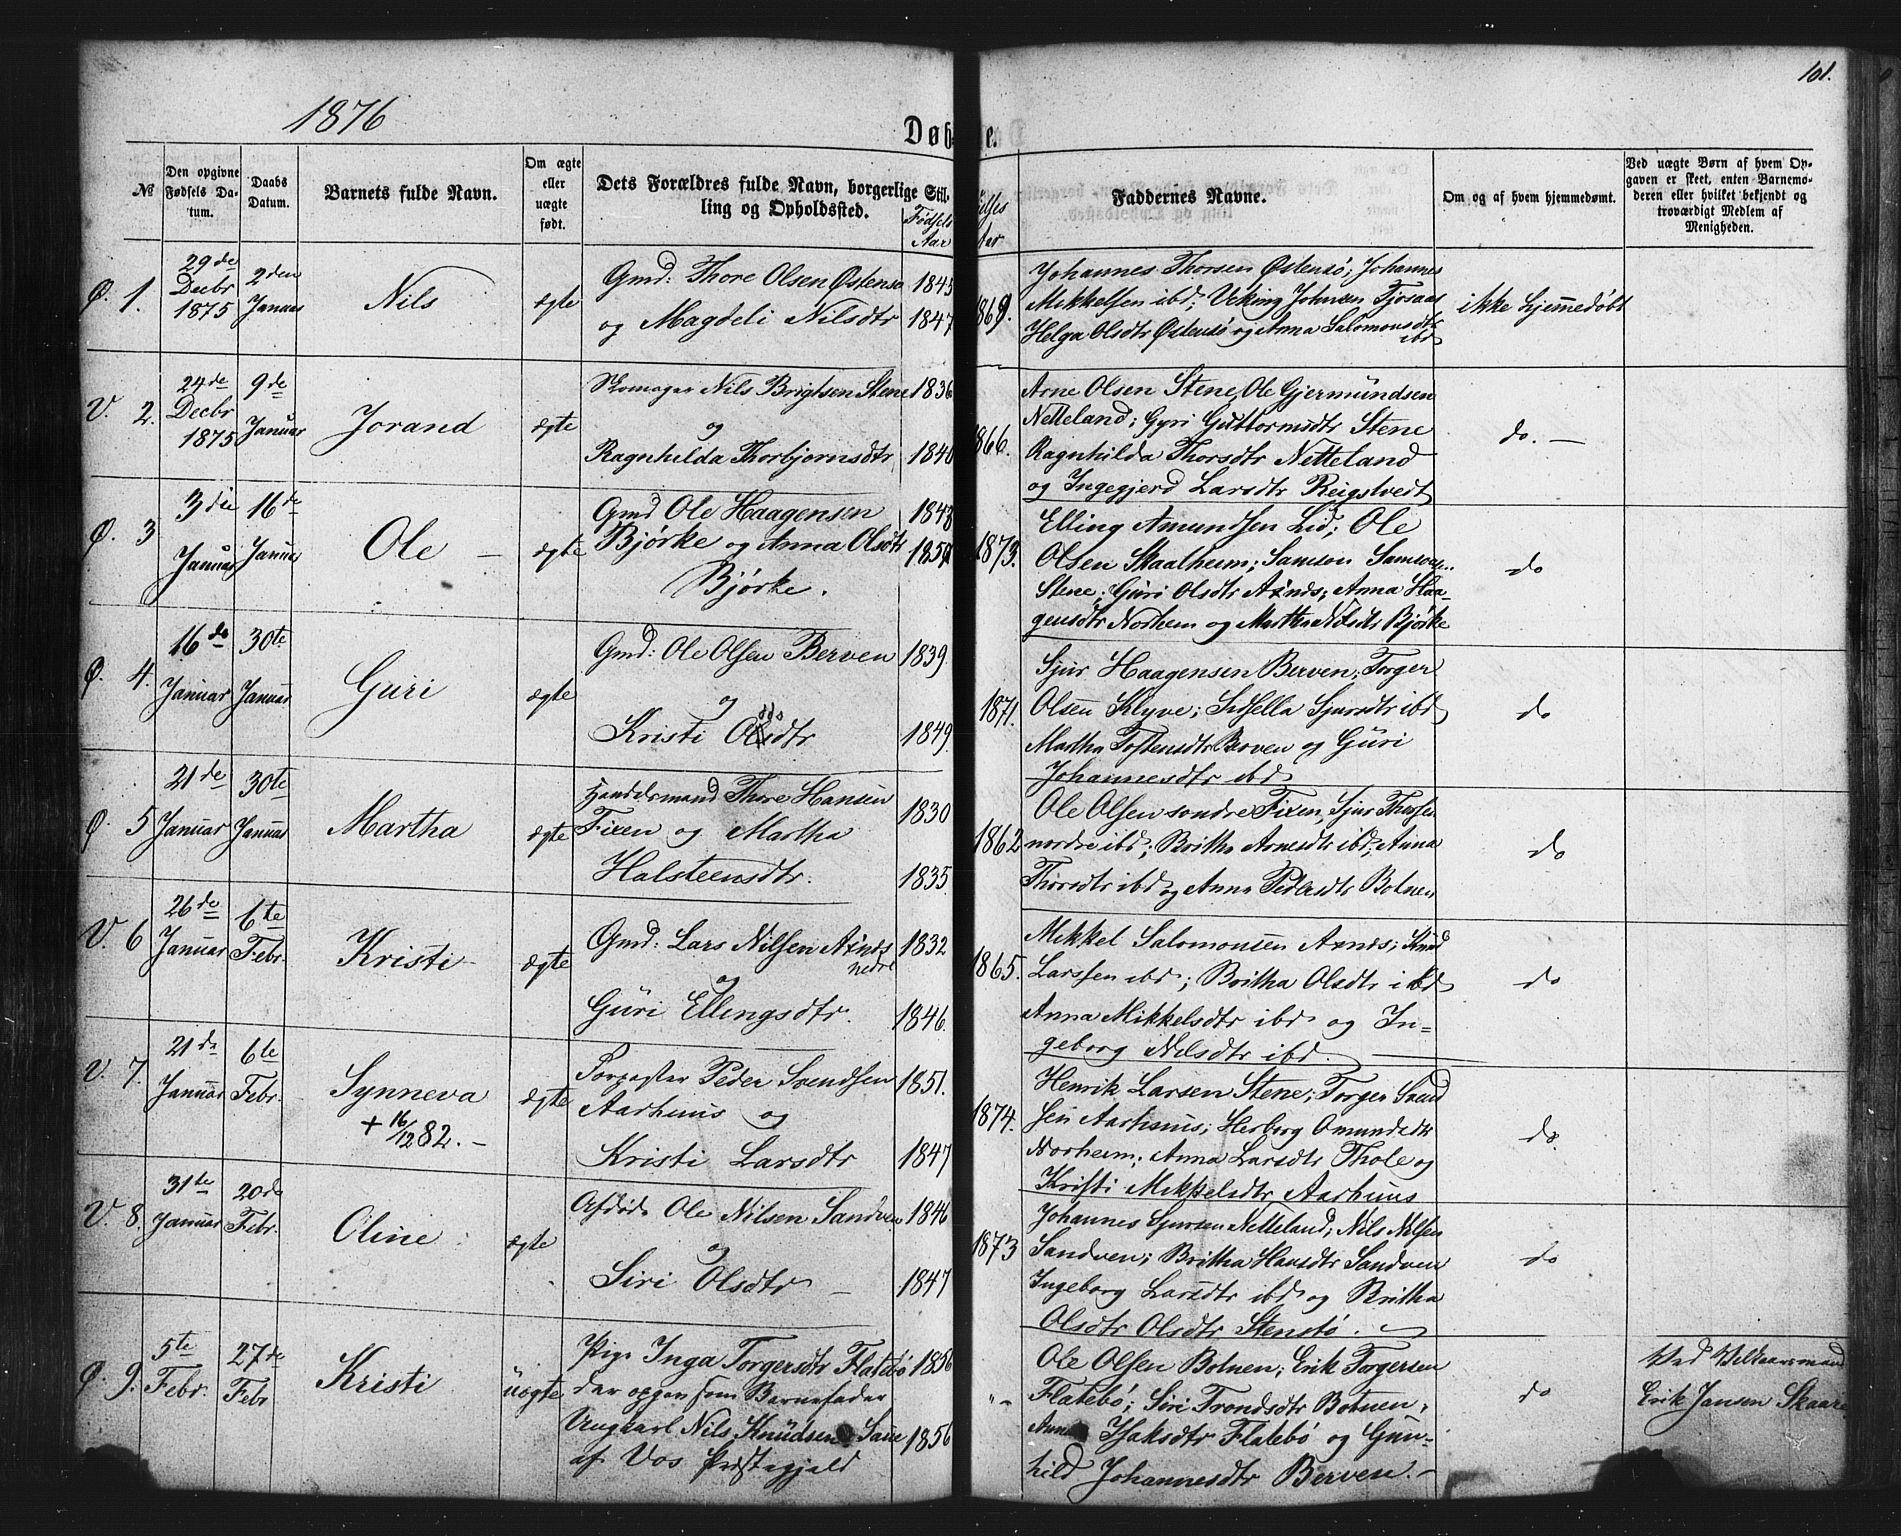 101.
1876
Døb
e.
№
Den opgivne Fødsels Datum.
Daabs Datum.
Barnets fulde Navn.
Om ægte eller uægte født.
Dets Forældres fulde Navn, borgerlige Stilling og Opholdssted.
Fødsels Aar
Faddernes Navne.
Om og af hvem hjemmedømt.
Ved uægte Børn af hvem Opgaven er skeet, enten Barnemoderen eller hvilket bekjendt og troværdigt Medlem af Menigheden.
Ø. 1.
29de Decbr 1875
2den Januar
Nils
ægte
Gmd: Thore Olsen Østensø 1845
og Magdeli Nilsdtr 1847
1869.
Johannes Thorsen Østensø; Johannes
Mikkelsen ibd; Veking Johnsen Tjosaas
Helga Olsdtr Østensø og Anna Salomonsdtr
ibd
ikke hjemmedøbt
V. 2.
24de Decbr 1875
9de Januar
Jorand
ægte
Skomager Nils Brigtsen Stene 1836
og
Ragnhilda Thorbjornsdtr 1840
1866.
Arne Olsen Stene, Ole Gjermundsen
Netteland; Gyri Guttormsdtr Stene
Ragnhilda Thorsdtr Netteland
og Ingegjerd Larsdtr Reigstvedt
do. —
Ø. 3
3die Januar
16de Januar
Ole —
ægte
Gmd Ole Haagensen 1848
Bjørke og Anna Olsdtr
Bjørke.
1873.
Elling Amundsen Lid; Ole
Olsen Skaalheim; Samson Samsons.
Stene; Guri Olsdtr Axnes; Anna Haa-
gensdtr Norheim og Martha Nilsdtr Bjørke
do
Ø. 4.
16de Januar
30te Januar
Guri
ægte
Gmd: Ole Olsen Berven 1839.
og
Kristi Olsdtr 1849
1871.
Sjur Haagensen Berven; Torger
Olsen Klyve; Sidsella Sjursdtr ibd
Martha Tostensdtr Berven og Guri
Johannesdtr ibd
do
Ø. 5
21de Januar
30te Januar
Martha
ægte
Handelsmand Thore Hansen 1830
Fixen og Martha
Halsteensdtr. 1835
1862
Ole Olsen sondre Fixen, Sjur Thorsen
nordre ibd; Britha Arnesdtr ibd; Anna
Thorsdtr ibd og Anna Pedersdtr Botnen
do
V. 6
26de Januar
6te Febr.
Kristi
ægte
Gmd: Lars Nilsen Axnes 1832
nedre
og
Guri Ellingsdtr. 1846.
1865.
Mikkel Salomonsen Axnes; Knud
Larssen ibd; Britha Olsdtr ibd
Anna Mikkelsdtr ibd og In-
geborg Nilsdtr ibd.
do
V. 7.
21de Januar
6te Febr.
Synneva
+ 16/12 82. -
ægte
Forpagter Peder Svendsen 1851.
Aarhuus og
Kristi Larsdtr 1847
1874.
Henrik Larsen Stene; Torger Svend
sen Aarhuus; Herborg Omundsdtr
Norheim; Anna Larsdtr Thole og
Kristi Mikkelsdtr Aarhuus
do
V. 8.
31te Januar
20de Febr.
Oline
ægte
Afdøde Ole Nilsen Sandven 1846
og
Siri Olsdtr 1847
1873
Johannes Sjursen Netteland; Nils Nilsen
Sandven; Britha Hansdtr Sandven
Ingeborg Larsdtr ibd og Britha
Olsdtr Olsdtr Stenstø.
do
Ø. 9.
5te Febr.
27de Febr
Kristi
uægte
Pige Inga Torgersdtr Flatebø 1856
der opgav som Barnefader
Ungkarl Nils Knudsen Saue 1856
af Vos Præstegjeld
Ole Olsen Botnen; Erik Torgersen
Flatebø; Siri Trondsdtr Botnen,
Anna Isaksdtr Flatebø og Gun-
hild Johannesdtr Berven. -
do
Ved Velkaarsmand
Erik Jansen Skaare